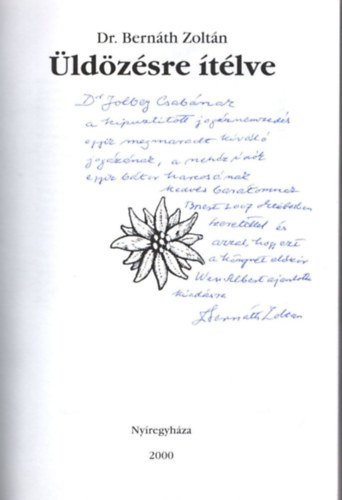 Dr. Bernáth Zoltán
Üldözésre ítélve
Dr Zolbay Csabának
a kipusztított jogásznemzedék
egyik megmaradt kiváló
jogászának, a nehéz idők
egyik bátor harcosának
kedves barátomnak
2007
szeretettel és
azzal, hogy ezt
a könyvet először
Wass Albert ajánlotta
kiadásra
Bernáth Zoltán
Nyíregyháza
2000